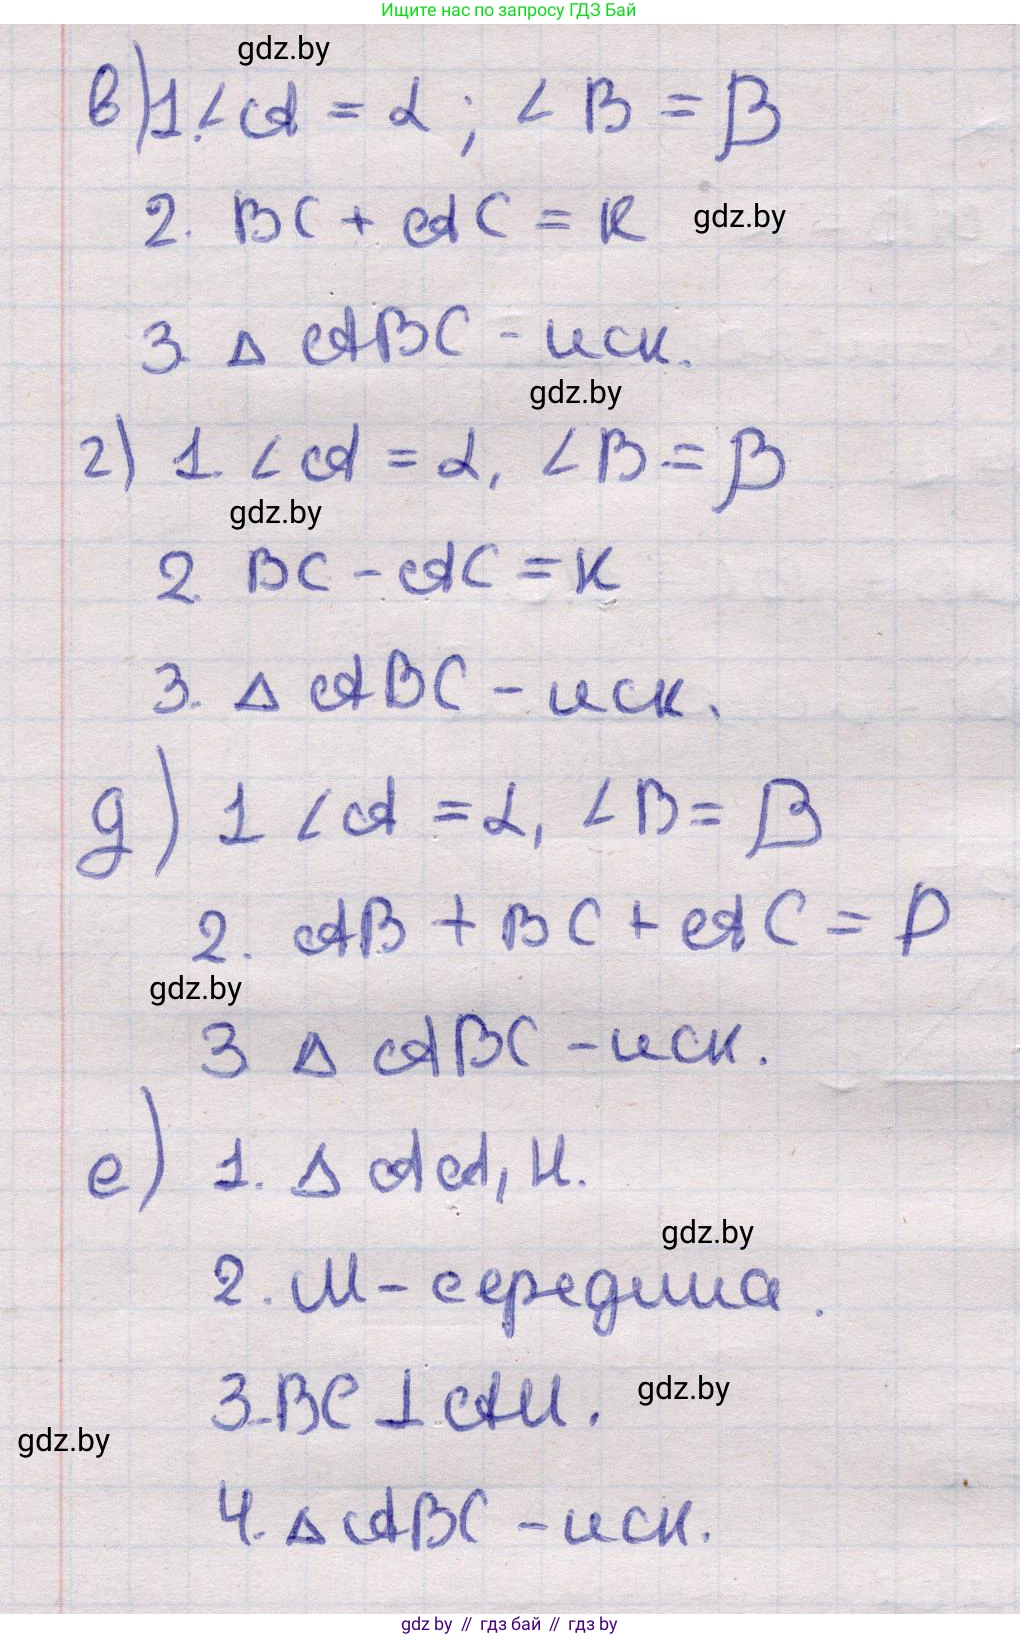 Ищите нас по запросу ГДЗ Бай
gdz.by
в) 1. ∠A = α; ∠B = β
2. BC + AC = K
gdz.by
3. Δ ABC - иск.
gdz.by
г) 1. ∠A = α, ∠B = β
gdz.by
2. BC - AC = K
3. Δ ABC - иск.
д) 1 ∠A = α, ∠B = β
2. AB + BC + AC = P
gdz.by
3 Δ ABC - иск.
е) 1. Δ AA₁H.
gdz.by
2. M - середина.
3. BC ⊥ AH.
gdz.by
gdz.by
4. Δ ABC - иск.
gdz by // гдз бай // gdz by